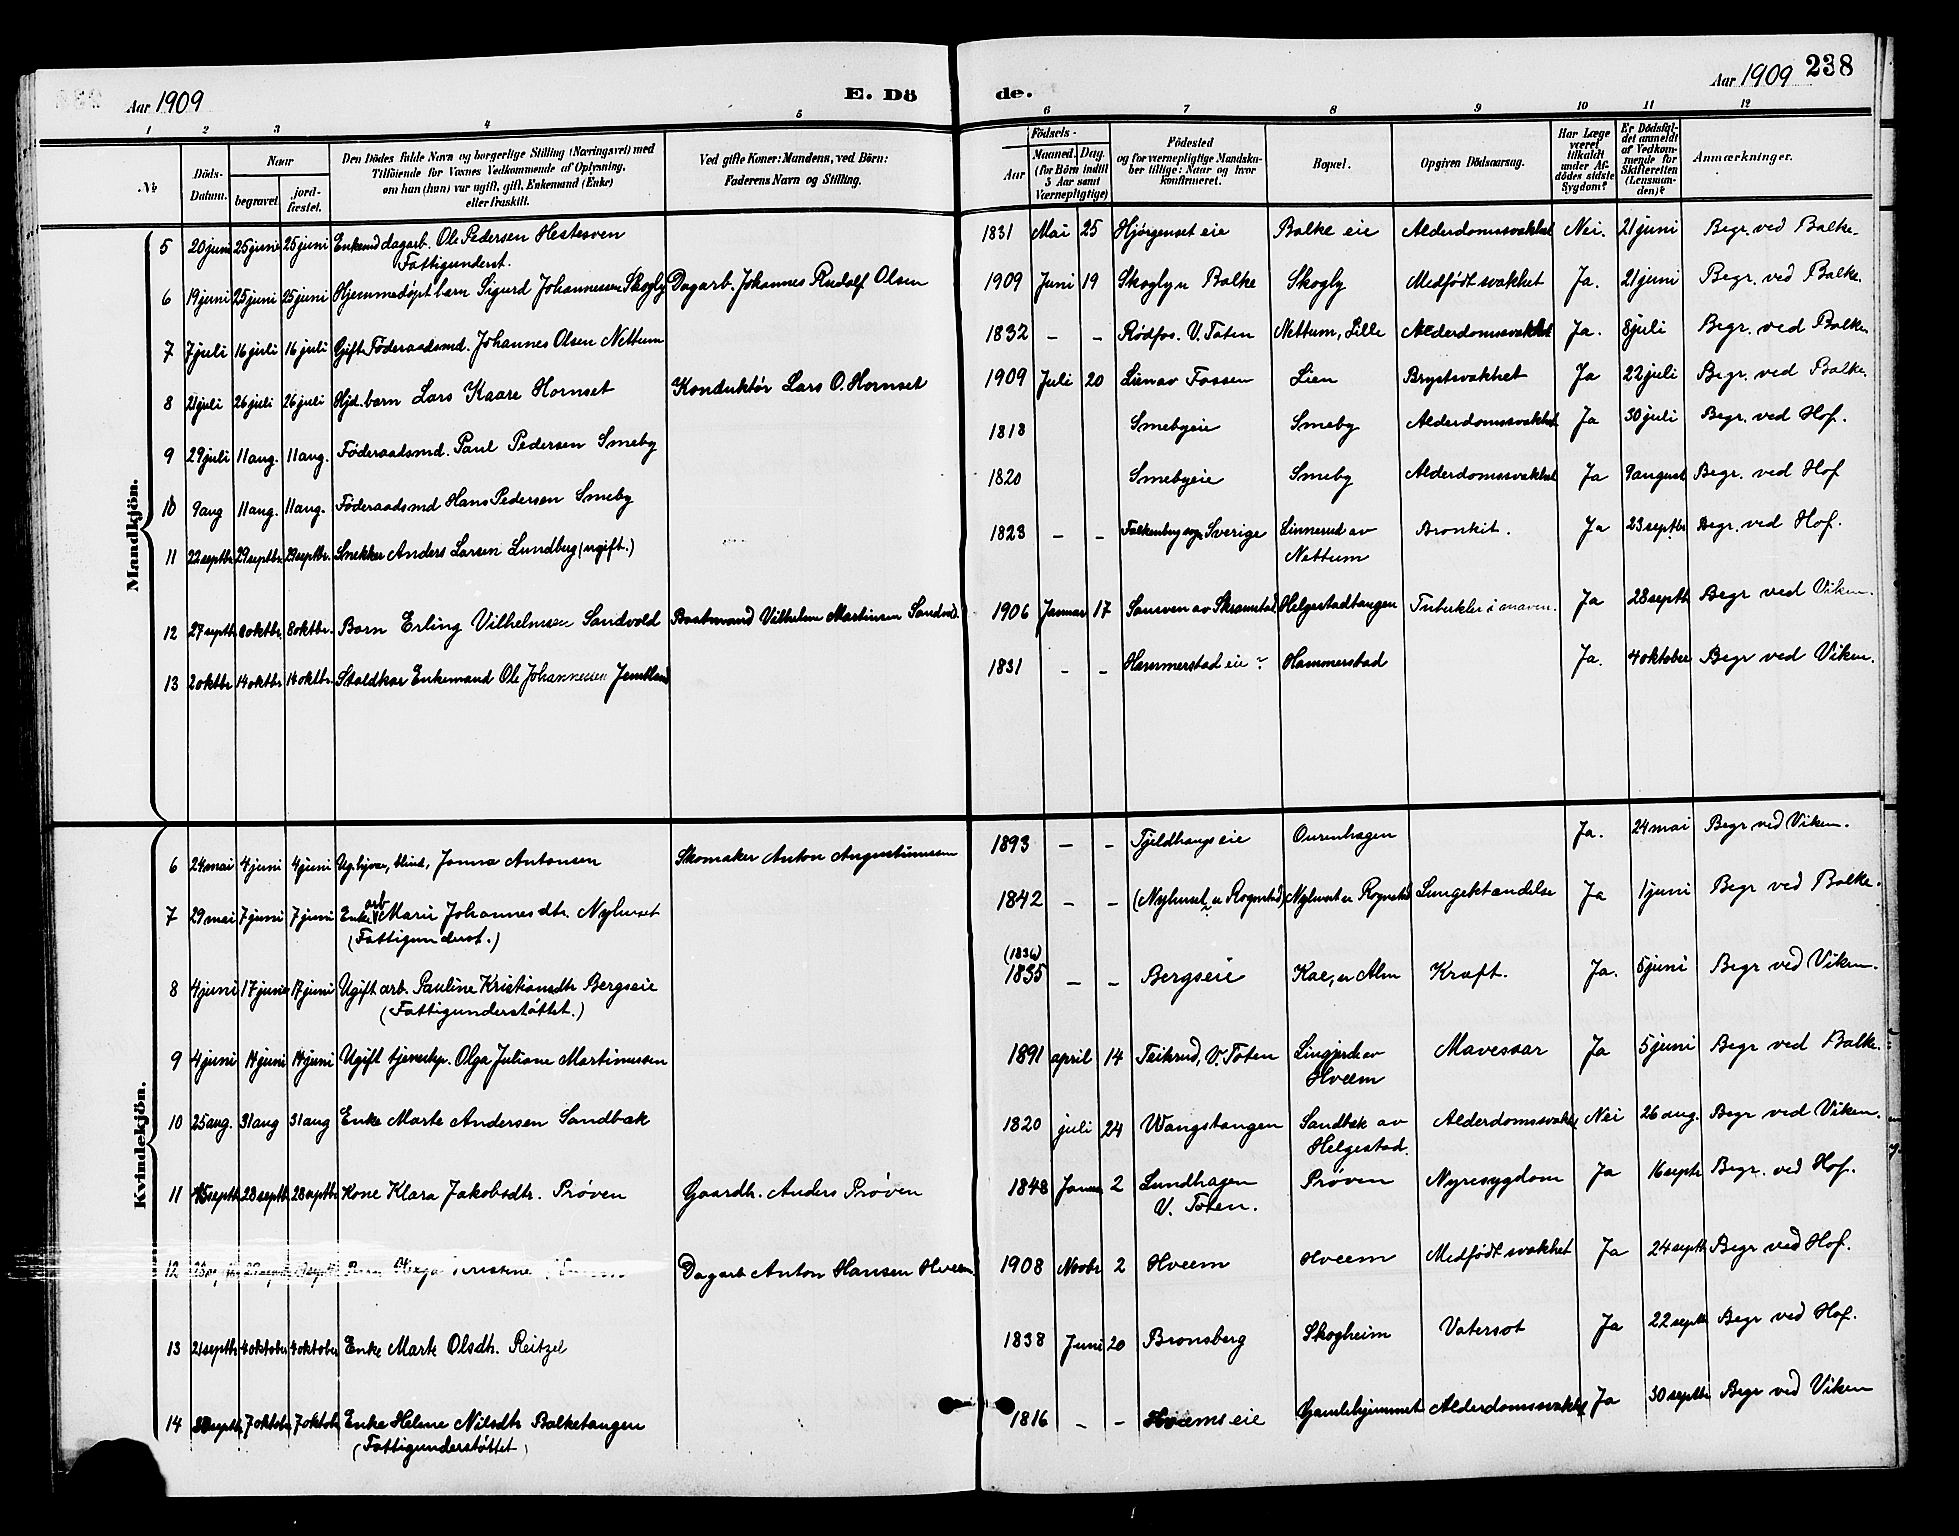 Aar 1909
E. Dö
de.
Aar 1909 238
1 2 3 4 5 6 7 8 9 10 11 12
№
Döds-
Datum.
Naar
begravet
jord-
fæstet.
Den Dödes fulde Navn og borgerlige Stilling (Næringsvei) med
Tilföiende for Voxnes Vedkommende af Oplysning,
om han (hun) var ugift, gift, Enkemand (Enke)
eller fraskilt.
Ved gifte Koner: Mandens, ved Börn:
Faderens Navn og Stilling.
Födsels-
Aar
Maaned. Dag.
(for Börn indtil
5 Aar samt
Værnepligtige)
Födested
og for værnepligtige Mandska-
ber tillige: Naar og hvor
konfirmeret.
Bopæl.
Opgiven Dödsaarsag.
Har Læge
været
tilkaldt
under Af-
dödes sidste
Sygdom?
Er Dödsfal-
det anmeldt
af Vedkom-
mende for
Skifteretten
(Lensman-
den)?
Anmærkninger.
Mandkjön.
5 20 juni 25 juni 25 juni Enkemd dagarb. Ole Pedersen Hestesven 1831 Mai 25 Hjørgenset eie Balke eie Alderdomssvakhet Nei. 21 juni Begr. ved Balke.
Fattigunderst.
6 19 juni 25 juni 25 juni Hjemmedøpt barn Sigurd Johannessen Skogly Dagarb. Johannes Rudolf Olsen 1909 Juni 19 Skogly u Balke Skogly Medfødt svakhet Ja. 21 juni Begr. ved Balke.
7 7 juli 16 juli 16 juli Gift Føderaadsmd. Johannes Olsen Nettum 1832 – – Rødfos. V. Toten Nettum, Lille Alderdomssvakhet Ja. 8 juli Begr. ved Balke
8 21 juli 26 juli 26 juli Hjd. barn Lars Kaare Hornset Konduktør Lars O. Hornset 1909 Juli 20 Lien av Fossen Lien Brystsvakhet Ja 22 juli Begr. ved Balke.
9 29 juli 11 aug. 11 aug. Føderaadsmd. Paul Pedersen Smeby 1818 Smebyeie Smeby Alderdomssvakhet Ja 30 juli Begr. ved Hof.
10 9 aug 11 aug. 11 aug. Føderaadsmd Hans Pedersen Smeby 1820 Smebyeie Smeby Alderdomssvakhet Ja 9 august Begr. ved Hof
11 22 septbr 29 septbr 29 septbr. Snekker Anders Larsen Lundberg (ugift.) 1823 – – Falkenberg sogn Sverige Linnerud av Bronkit. Ja 23 septbr Begr. ved Hof.
Nettum
12 27 septb 8 oktbr. 8 oktbr. Barn Erling Vilhelmsen Sandvold Baatmand Vilhelm Martinsen Sandvol. 1906 Januar 17 Sansven av Skramstad Helgestadtangen Tuberkler i maven. Ja 28 septb Begr ved Viken.
13 2 oktbr 14 oktbr 14 oktbr. Staldkar Enkemand Ole Johannessen Jemtland 1831 – – Hammerstad eie ? Hammerstad Ja. 4 oktober Begr ved Viken.
Kvindekjön.
6 24 mai 4 juni 4 juni Ug. blind, Jonna Antonsen Skomaker Anton Augustinussen 1893 – – Tjeldhaugseie Ourenhagen Ja. 24 mai Begr ved Viken.
7 29 mai 7 juni 7 juni Enke arb Marie Johannesdtr. Nyhuset 1842 – – (Nyhuset u Rognstad) Nyhuset u Rognstad Lungebetændelse Ja 1 juni Begr ved Balke.
(Fattigunderst.)
8 4 juni 17 juni 17 juni Ugift arb. Pauline Kristiansdtr Bergseie (1836) 1835 – – Bergseie Kae, u Alm Kræft. Ja. 5 juni Begr ved Viken.
(Fattigunderstøttet.)
9 4 juni 14 juni 14 juni Ugift tjenestep. Olga Juliane Martinussen 1891 april 14 Teikrud, V. Toten Lingjerde av Mavesaar Ja 5 juni Begr ved Balke.
Hveem
10 25 aug. 31 aug 31 aug Enke Marte Andersen Sandbæk 1820 juli 24 Wangstangen Sandbæk av Alderdomssvakhet Nei 26 aug. Begr ved Viken.
Helgestad.
11 15 septb 28 septb 28 septb Kone Klara Jakobsdtr. Prøven Gaardbr. Anders Prøven 1848 Januar 2 Lundhagen Prøven Nyresygdom Ja 16 septb Begr. ved Hof.
V. Toten.
12 Kristine Dagarb Anton Hansen Hveem 1908 Novbr 2 Hveem Hveem Medfødt svakhet Ja 24 septb Begr ved Hof.
13 21 septb 4 oktober 4 oktober Enke Marte Olsdtr. Reitzel 1838 Juni 20 Bronsberg Skogheim Vatersot Ja 22 septb Begr ved Hof.
14 septb. 7 oktobr 7 oktobr Enke Helene Nilsdtr Balketangen 1816 – – Hveemseie Gamlehjemmet Alderdomssvakhet Ja 30 septbr Begr ved Viken
(Fattigunderstøttet)